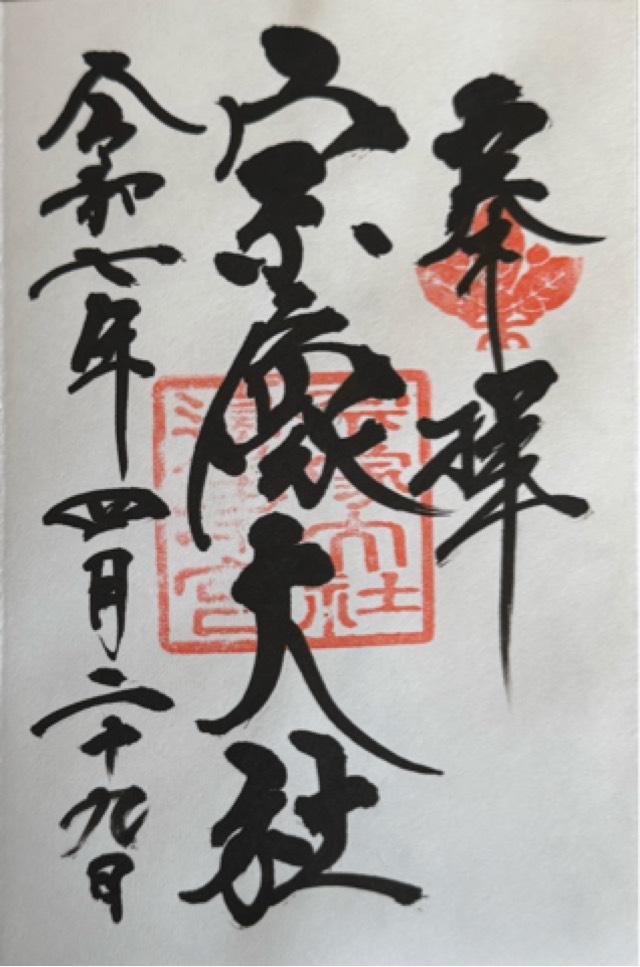 奉拝
宗像大社
令和七年四月二十九日
宗像大社